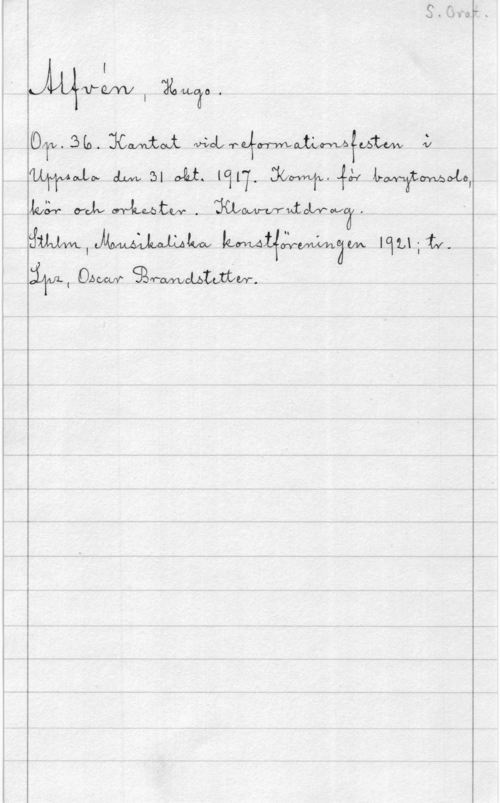 S. Orat.
Alfvén, Hugo.
Op. 36. Kantat vid reformationsfesten i
Uppsala den 31 okt. 1917. Komp. för barytonsolo,
kör och orkester. Klaverutdrag.
Sthlm, Musikaliska konstföreningen 1921; tr.
Lpz, Oscar Brandstetter.